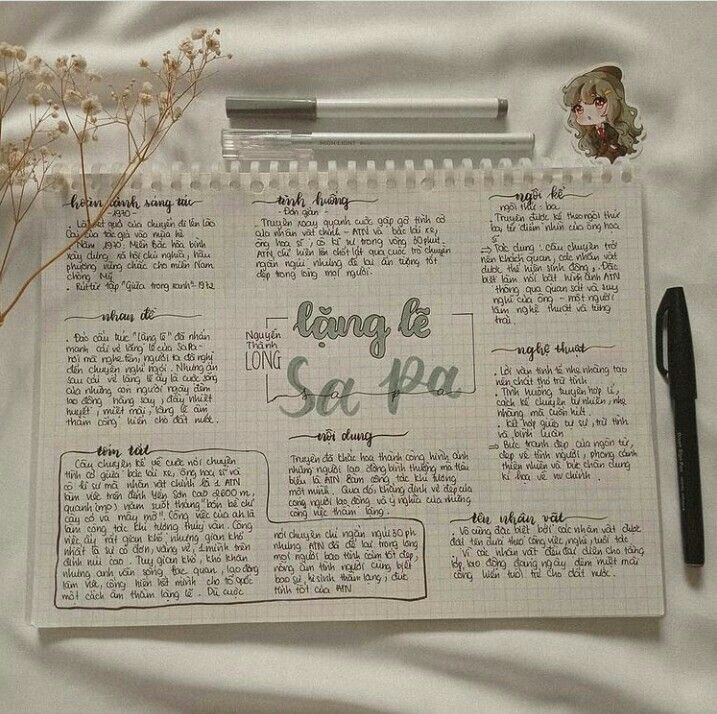 HIGHLIGHT
hoàn cảnh sáng tác
- 1970 -
. Là kết quả của chuyến đi lên Lào
Cai của tác giả vào mùa hè
. Năm 1970: Miền Bắc hòa bình
xây dựng xã hội chủ nghĩa, hậu
phương vững chắc cho miền Nam
chống Mỹ
. Rút từ tập "Giữa trong xanh" - 1972
nhan đề
. Đảo cấu trúc "lặng lẽ" đã nhấn
mạnh cái vẻ lặng lẽ của SaPa -
nơi mà nghe tên, người ta đã nghĩ
đến chuyện nghỉ ngơi. Nhưng ẩn
sau cái vẻ lặng lẽ ấy là cuộc sống
của những con người ngày đêm
lao động hăng say, đầy nhiệt
huyết, miệt mài, lặng lẽ âm
thầm cống hiến cho đất nước.
tình huống
- Đơn giản -
. Truyện xoay quanh cuộc gặp gỡ tình cờ
của nhân vật chính - ATN và bác lái xe,
ông họa sĩ, cô kĩ sư trong vòng 30 phút.
ATN chỉ hiện lên chốt lát qua cuộc trò chuyện
ngắn ngủi nhưng để lại ấn tượng tốt
đẹp trong lòng mọi người.
Nguyễn
Thành
LONG
lặng lẽ
Sa Pa
s a p a
nội dung
Truyện đã khắc họa thành công hình ảnh
những người lao động bình thường mà tiêu
biểu là ATN làm công tác khí tượng
một mình. Qua đó, khẳng định vẻ đẹp của
con người lao động và ý nghĩa của những
công việc thầm lặng.
ngôi kể
ngôi thứ: ba
. Truyện được kể theo ngôi thứ
ba, từ điểm nhìn của ông họa
sĩ
⇒ Tác dụng: câu chuyện trở
nên khách quan, các nhân vật
được thể hiện sinh động, Đặc
biệt làm nổi bật hình ảnh ATN
thông qua quan sát và suy
nghĩ của ông - một người
làm nghệ thuật và từng
trải.
nghệ thuật
. Lời văn tinh tế nhẹ nhàng tạo
nên chất thơ trữ tình
. Tình huống truyện hợp lí,
cách kể chuyện tự nhiên, nhẹ
nhàng mà cuốn hút.
. Kết hợp giữa tự sự, trữ tình
và bình luận
⇒ Bức tranh đẹp của ngôn từ,
đẹp về tình người, phong cảnh
thiên nhiên và bức chân dung
kí họa về nv chính.
tóm tắt
Câu chuyện kể về cuộc nói chuyện
tình cờ giữa bác lái xe, ông họa sĩ và
cô kĩ sư mà nhân vật chính là 1 ATN
làm việc trên đỉnh Yên Sơn cao 2600m,
quanh năm suốt tháng "bốn bề chỉ
cây cỏ và mây mù". Công việc của anh là
làm công tác khí tượng thủy văn. Công
việc ấy rất gian khổ, nhưng gian khổ
nhất là sự cô đơn, vắng vẻ, 1 mình trên
đỉnh núi cao. Tuy gian khổ, khó khăn
nhưng anh vẫn sống lạc quan, lao động
làm việc, cống hiến hết mình cho tổ quốc
một cách âm thầm lặng lẽ. Dù cuộc
nói chuyện chỉ ngắn ngủi 30 ph
nhưng ATN đã để lại trong lòng
mọi người bao tình cảm tốt đẹp
nồng ấm tình người cùng biết
bao sự hi sinh thầm lặng, đức
tính tốt của ATN
tên nhân vật
. Vô cùng đặc biệt bởi các nhân vật được
đặt tên theo công việc, nghề, tuổi tác
Vì các nhân vật đều đại diện cho tầng
lớp lao động đang ngày đêm miệt mài
cống hiến tuổi trẻ cho đất nước.